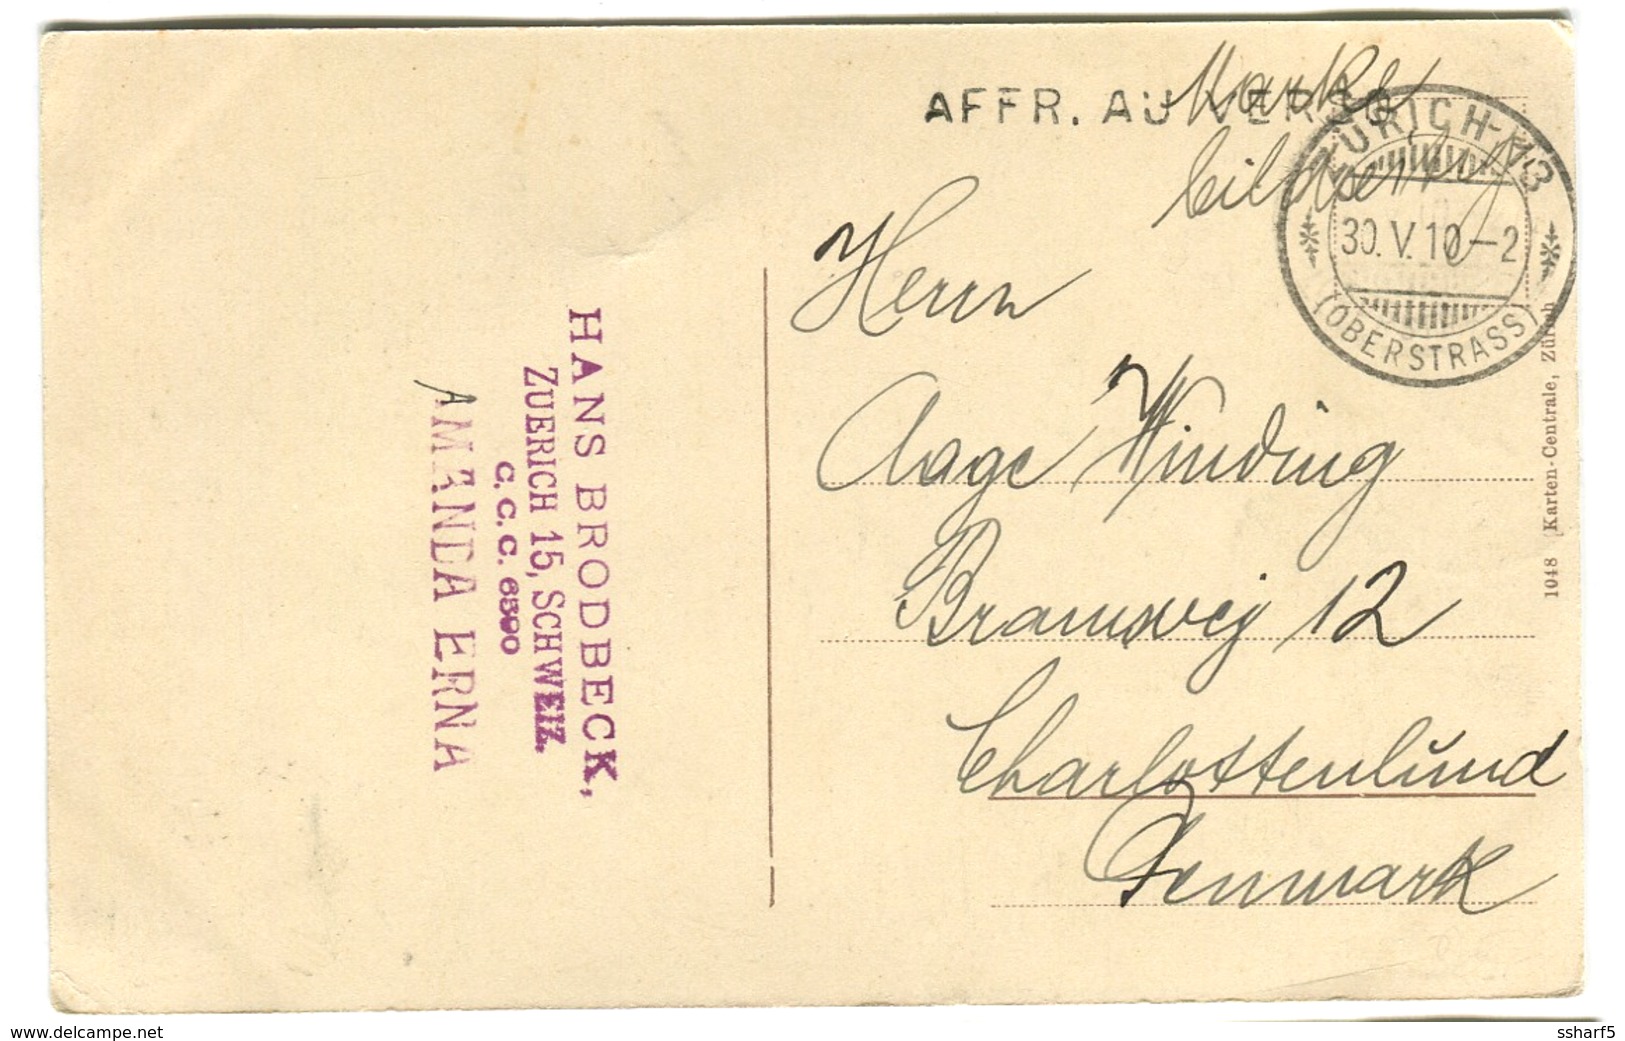 AFFR. AU VERSO
Marke
bildseitig
ZÜRICH-13
30.V.10-2
(OBERSTRASS)
Herrn
Aage Winding
12
Charlottenlund
Denmark
1048 Karten-Centrale, Zürich
HANS BRODBECK,
ZUERICH 15, SCHWEIZ.
C. C. C. 6500
AMANDA ERNA
www.delcampe.net
ssharf5